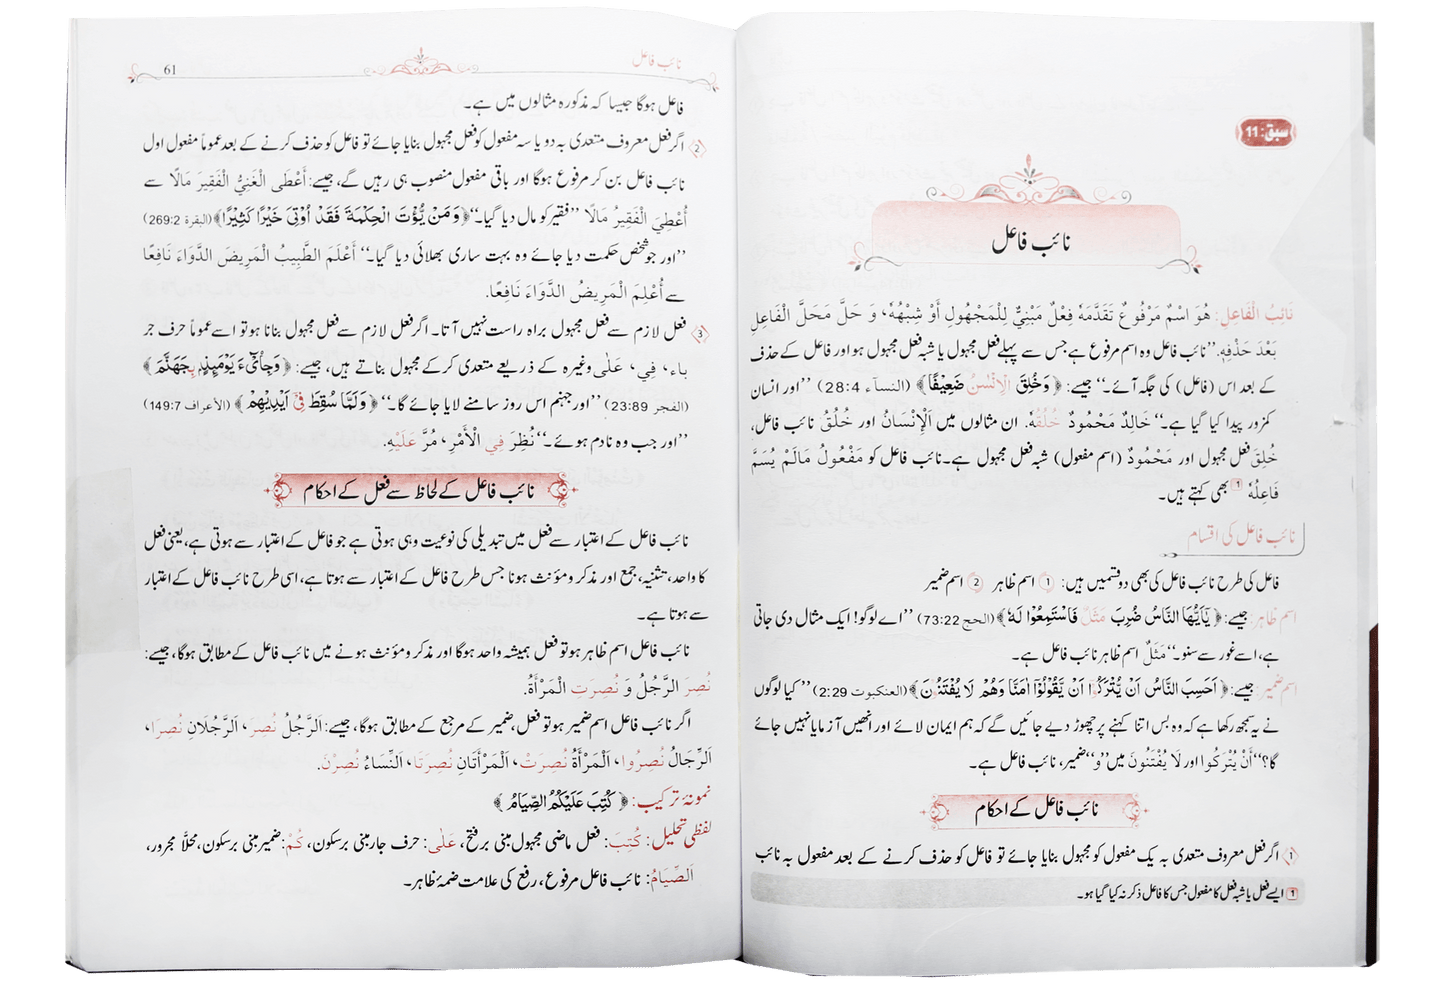 سبق: 11
نائب فاعل
نَائِبُ الْفَاعِلِ: هُوَ اسْمٌ مَرْفُوعٌ تَقَدَّمَهُ فِعْلٌ مَبْنِيٌّ لِلْمَجْهُولِ أَوْ شِبْهُهُ، وَ حَلَّ مَحَلَّ الْفَاعِلِ
بَعْدَ حَذْفِهِ. ’’نائب فاعل وہ اسم مرفوع ہے جس سے پہلے فعل مجہول یا شبہ فعل مجہول ہو اور فاعل کے حذف
کے بعد اس (فاعل) کی جگہ آئے۔‘‘ جیسے: ﴿وَخُلِقَ الْاِنْسٰنُ ضَعِيْفًا﴾ (النسآء 28:4) ’’اور انسان
کمزور پیدا کیا گیا ہے۔‘‘ خَالِدٌ مَحْمُودٌ خُلُقُهُ. ان مثالوں میں اَلْإِنْسَانُ اور خُلُقُ نائب فاعل،
خُلِقَ فعل مجہول اور مَحْمُودٌ (اسم مفعول) شبہ فعل مجہول ہے۔ نائب فاعل کو مَفْعُولُ مَالَمْ يُسَمَّ
فَاعِلُهُ 1 بھی کہتے ہیں۔
نائب فاعل کی اقسام
فاعل کی طرح نائب فاعل کی بھی دو قسمیں ہیں: 1 اسم ظاہر 2 اسم ضمیر
اسم ظاہر جیسے: ﴿يٰۤاَيُّهَا النَّاسُ ضُرِبَ مَثَلٌ فَاسْتَمِعُوْا لَهٗ﴾ (الحج 73:22) ’’اے لوگو! ایک مثال دی جاتی
ہے، اسے غور سے سنو۔‘‘ مَثَلٌ اسم ظاہر نائب فاعل ہے۔
اسم ضمیر جیسے: ﴿اَحَسِبَ النَّاسُ اَنْ يُّتْرَكُوْۤا اَنْ يَّقُوْلُوْۤا اٰمَنَّا وَهُمْ لَا يُفْتَنُوْنَ﴾ (العنكبوت 2:29) ’’کیا لوگوں
نے یہ سمجھ رکھا ہے کہ وہ بس اتنا کہنے پر چھوڑ دیے جائیں گے کہ ہم ایمان لائے اور انھیں آزمایا نہیں جائے
گا؟‘‘ أَنْ يُتْرَكُوا اور لَا يُفْتَنُونَ میں ’’و‘‘ ضمیر، نائب فاعل ہے۔
نائب فاعل کے احکام
1 اگر فعل معروف متعدی بہ یک مفعول کو مجہول بنایا جائے تو فاعل کو حذف کرنے کے بعد مفعول بہ نائب
1 ایسے فعل یا شبہ فعل کا مفعول جس کا فاعل ذکر نہ کیا گیا ہو۔
نائب فاعل
61
فاعل ہوگا جیسا کہ مذکورہ مثالوں میں ہے۔
2 اگر فعل معروف متعدی بہ دو یا سہ مفعول کو فعل مجہول بنایا جائے تو فاعل کو حذف کرنے کے بعد عموماً مفعول اول
نائب فاعل بن کر مرفوع ہوگا اور باقی مفعول منصوب ہی رہیں گے، جیسے: أَعْطَى الْغَنِيُّ الْفَقِيرَ مَالًا سے
أُعْطِيَ الْفَقِيرُ مَالًا ’’فقیر کو مال دیا گیا۔‘‘ ﴿وَمَنْ يُّؤْتَ الْحِكْمَةَ فَقَدْ اُوْتِىَ خَيْرًا كَثِيْرًا﴾ (البقرة 269:2)
’’اور جو شخص حکمت دیا جائے وہ بہت ساری بھلائی دیا گیا۔‘‘ أَعْلَمَ الطَّبِيبُ الْمَرِيضَ الدَّوَاءَ نَافِعًا
سے أُعْلِمَ الْمَرِيضُ الدَّوَاءَ نَافِعًا.
3 فعل لازم سے فعل مجہول براہ راست نہیں آتا۔ اگر فعل لازم سے فعل مجہول بنانا ہو تو اسے عموماً حرف جر
باء، فِي، عَلٰى وغیرہ کے ذریعے متعدی کر کے مجہول بناتے ہیں، جیسے: ﴿وَجِاْىْٓءَ يَوْمَىِٕذٍۭ بِجَهَنَّمَ﴾
(الفجر 23:89) ’’اور جہنم اس روز سامنے لایا جائے گا۔‘‘ ﴿وَلَمَّا سُقِطَ فِىْۤ اَيْدِيْهِمْ﴾ (الأعراف 149:7)
’’اور جب وہ نادم ہوئے۔‘‘ نُظِرَ فِي الْأَمْرِ، مُرَّ عَلَيْهِ.
نائب فاعل کے لحاظ سے فعل کے احکام
نائب فاعل کے اعتبار سے فعل میں تبدیلی کی نوعیت وہی ہوتی ہے جو فاعل کے اعتبار سے ہوتی ہے، یعنی فعل
کا واحد، تثنیہ، جمع اور مذکر و مؤنث ہونا جس طرح فاعل کے اعتبار سے ہوتا ہے، اسی طرح نائب فاعل کے اعتبار
سے ہوتا ہے۔
نائب فاعل اسم ظاہر ہو تو فعل ہمیشہ واحد ہوگا اور مذکر و مؤنث ہونے میں نائب فاعل کے مطابق ہوگا، جیسے:
نُصِرَ الرَّجُلُ وَ نُصِرَتِ الْمَرْأَةُ.
اگر نائب فاعل اسم ضمیر ہو تو فعل، ضمیر کے مرجع کے مطابق ہوگا، جیسے: اَلرَّجُلُ نُصِرَ، اَلرَّجُلَانِ نُصِرَا،
اَلرِّجَالُ نُصِرُوا، اَلْمَرْأَةُ نُصِرَتْ، اَلْمَرْأَتَانِ نُصِرَتَا، اَلنِّسَاءُ نُصِرْنَ.
نمونۂ ترکیب: ﴿كُتِبَ عَلَيْكُمُ الصِّيَامُ﴾
لفظی تحلیل: كُتِبَ: فعل ماضی مجہول مبنی بر فتح، عَلٰى: حرف جار مبنی بر سکون، كُمْ: ضمیر مبنی بر سکون، محلاً مجرور،
اَلصِّيَامُ: نائب فاعل مرفوع، رفع کی علامت ضمۂ ظاہر۔